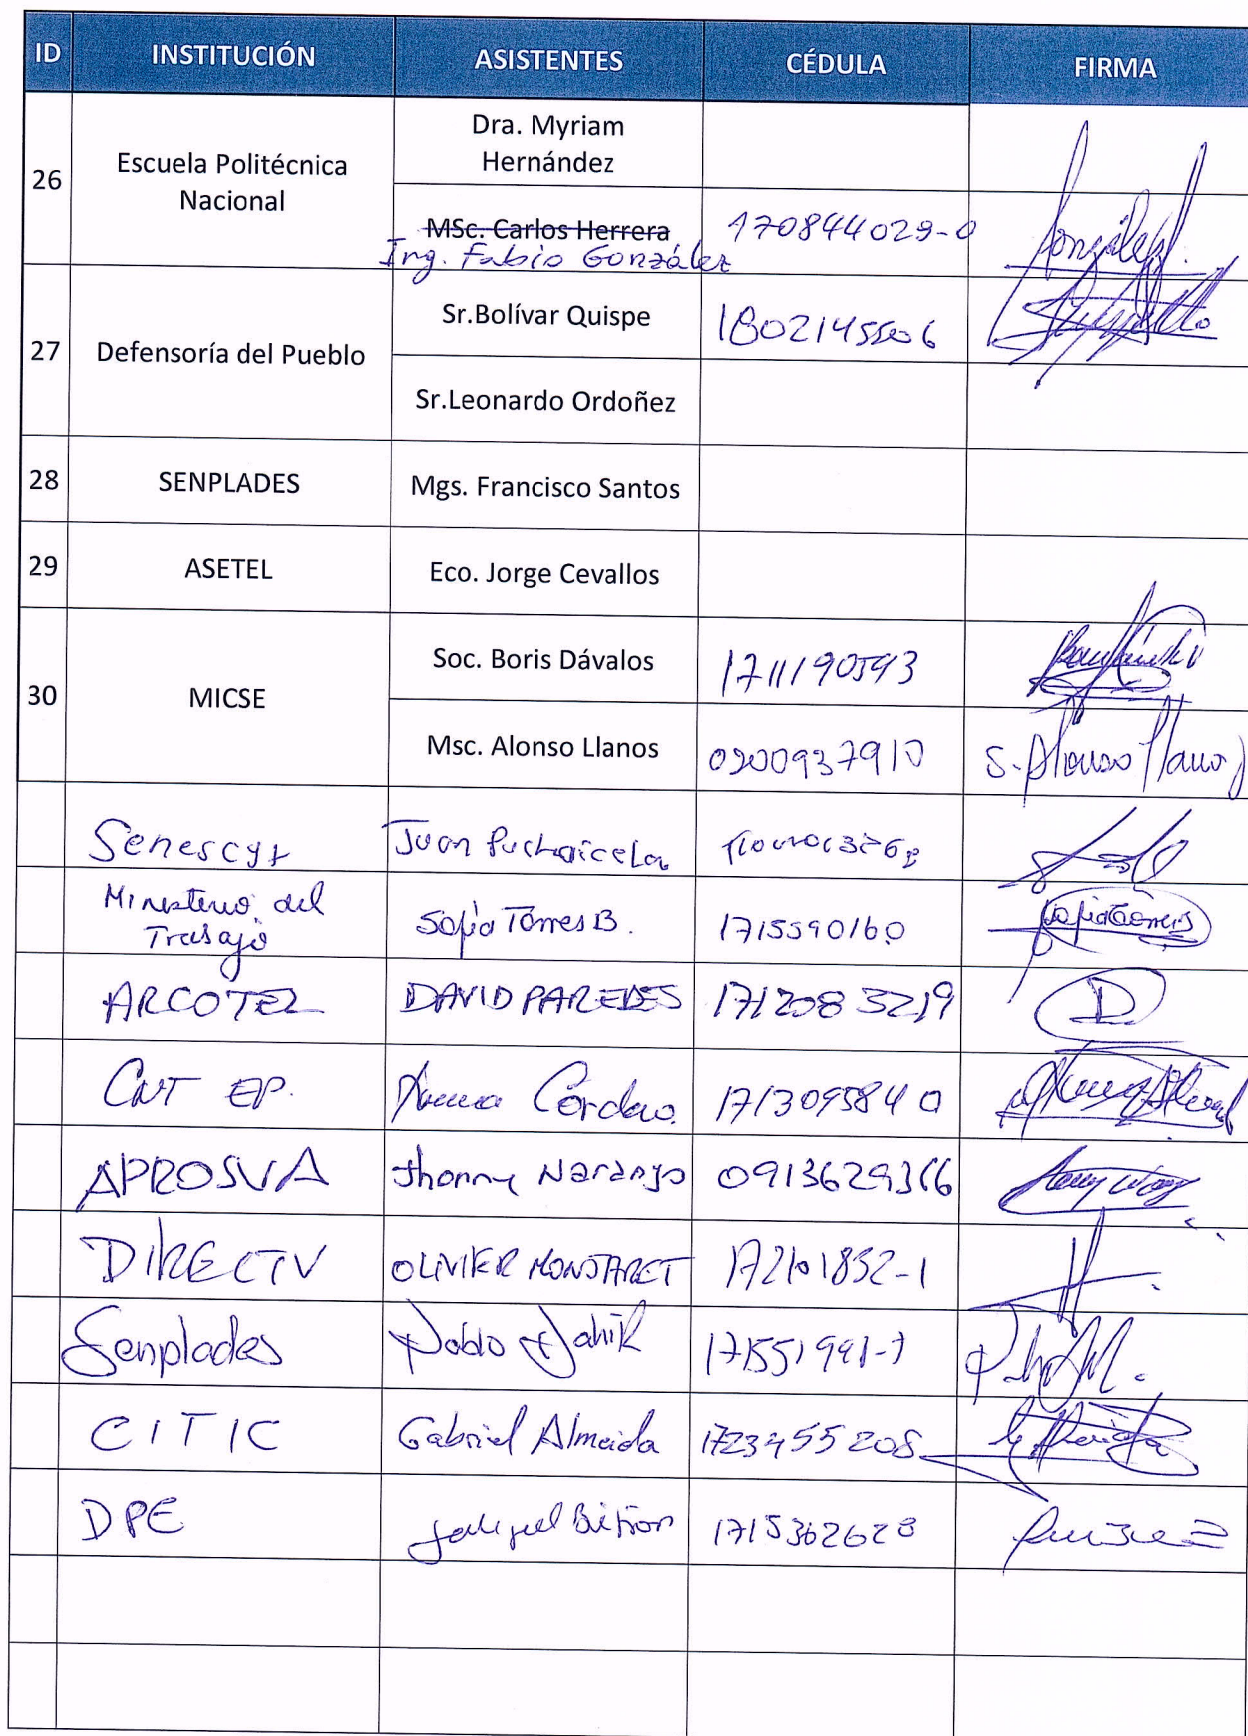 ID INSTITUCIÓN ASISTENTES CÉDULA FIRMA
26 Escuela Politécnica Nacional
Dra. Myriam Hernández
MSc. Carlos Herrera
Ing. Fabio González 170844029-0
27 Defensoría del Pueblo
Sr.Bolívar Quispe
Sr.Leonardo Ordoñez
28 SENPLADES Mgs. Francisco Santos
29 ASETEL Eco. Jorge Cevallos
30 MICSE
Soc. Boris Dávalos 1711190593
Msc. Alonso Llanos 0200937910 S. Alonso Llanos
Senescyt Juan Puchaicela
Ministerio del
Trabajo Sofia Torres B. 1715590160
ARCOTEL DAVID PAREDES 1712083219
CNT EP. 1713095840
APROSVA Jhonny Naranjo 0913629366
DIRECTV OLIVIER MONSTARET
Senplades Pablo
CITIC Gabriel Almeida 1723455208
DPE 1715362628